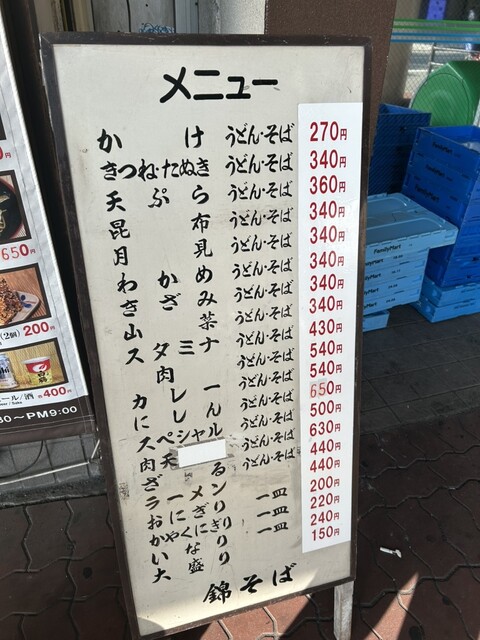 メニュー
かけ うどん・そば 270円
きつね・たぬき うどん・そば 340円
天ぷら うどん・そば 360円
昆布 うどん・そば 340円
月見 うどん・そば 340円
わかめ うどん・そば 340円
きざみ うどん・そば 340円
山菜 うどん・そば 340円
スタミナ うどん・そば 430円
肉 うどん・そば 540円
カレー うどん・そば 540円
にしん うどん・そば 650円
スペシャル うどん・そば 500円
肉天 うどん・そば 630円
ざる うどん・そば 440円
ラーメン 440円
おにぎり 一皿 200円
かやくにぎり 一皿 220円
いなり 一皿 240円
大盛 150円
錦そば
650円
(2個) 200円
ール/酒 各400円
30~PM9:00
FamilyMart
FamilyMart
FamilyMart